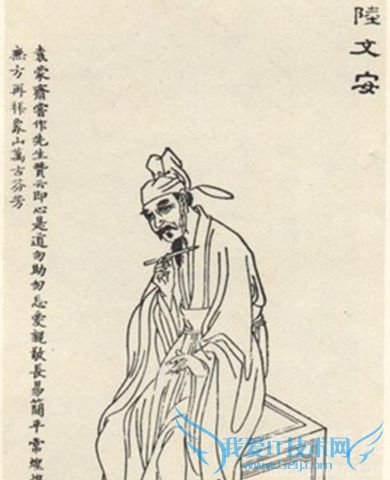 陸文安
袁蒙齋嘗作先生贊云即心是道勿助勿忘愛親敬長易簡平常煌
無方再拜象山萬古芬芳
我爱IT技术网